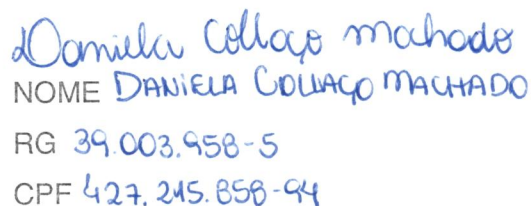 Daniela Collaço machado
NOME DANIELA COLLAÇO MACHADO
RG 39.003.958-5
CPF 427.215.858-94